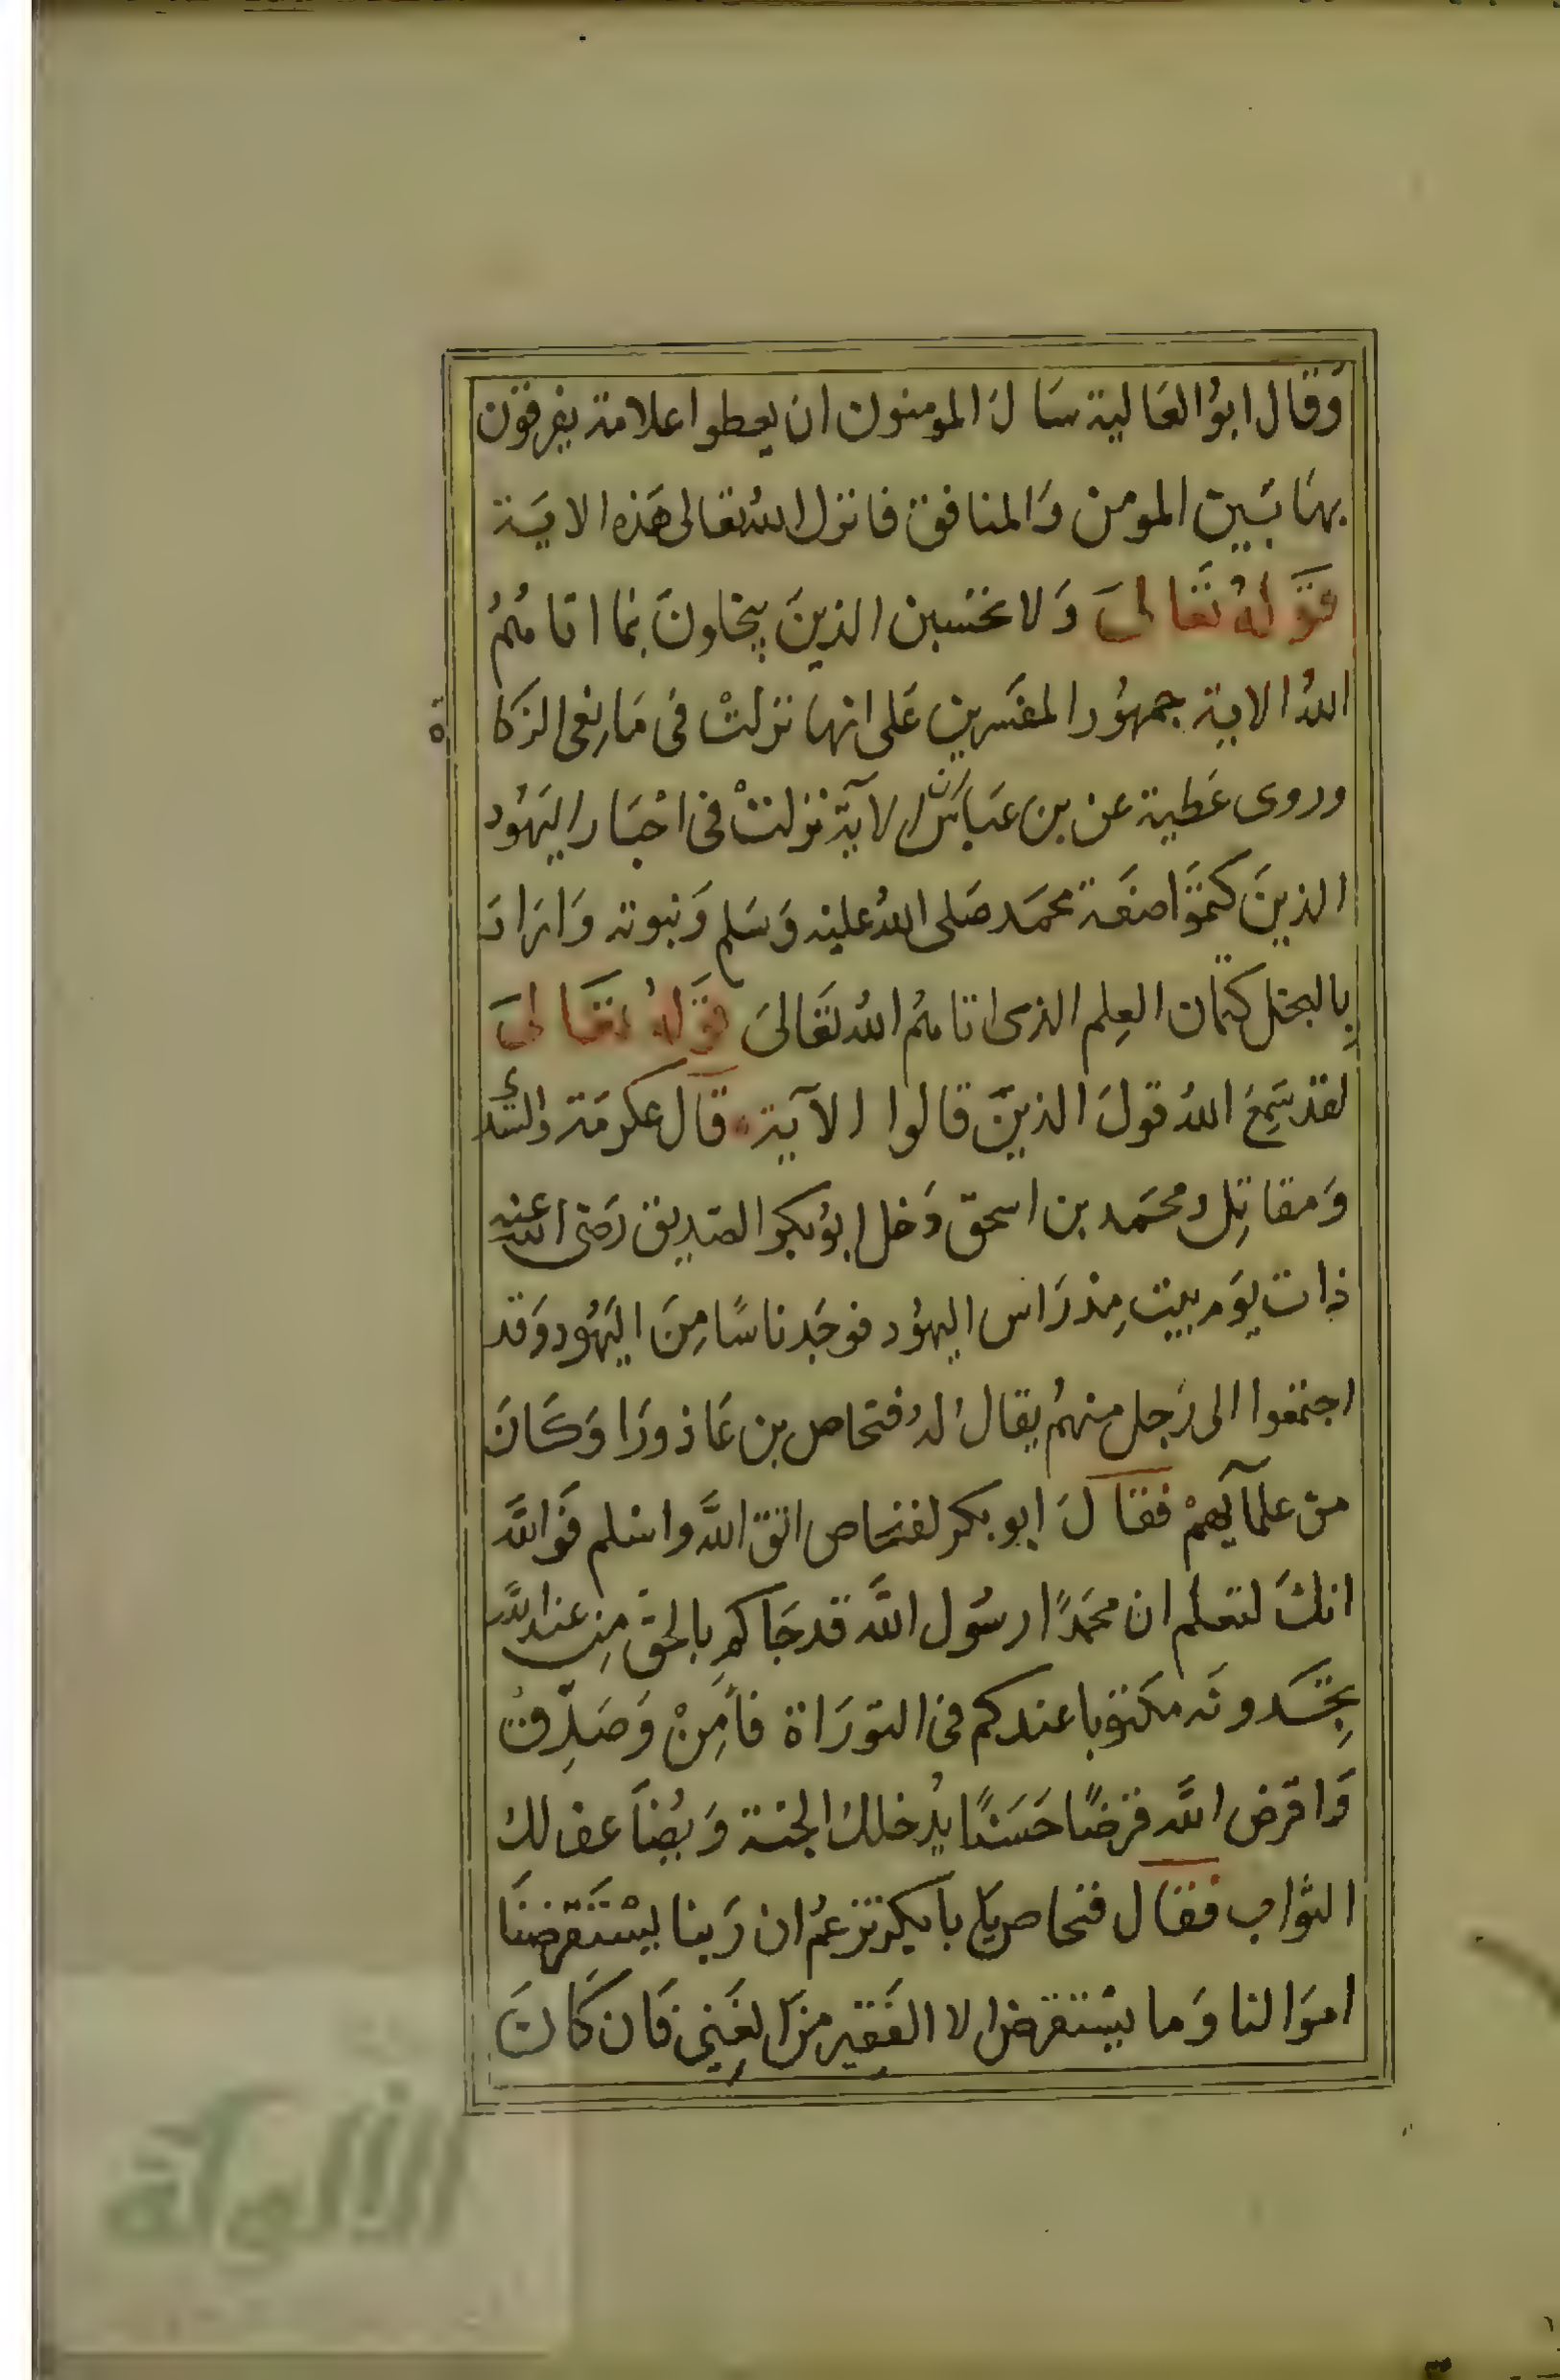 وَقال ابوُ العَالية سَال المومنون ان يعطوا علامة يفرقون
بهَا بَين المومن وَالمنافق فانزل اللهُ تعالى هَذه الايَة
قوَلهُ تَعَالىَ وَلا تحسبن الذينَ يبخلونَ بما اتاهُمُ
اللهُ الاية جمهوُر المفسَرين عَلى انها نزلتْ في مَانعى الزكا
ة
وروى عَطية عن بن عَباسَ ان الآية نزلتْ في احْبَار اليَهُود
الذينَ كتمَوا صفَة محمَد صَلى اللهُ عليه وَسَلم وَنبوته وَارَادَ
بِالبخل كتمان العِلم الذى اتاهُم اللهُ تَعَالىَ قوَلهُ تعَالىَ
لقد سَمِعَ اللهُ قولَ الذينَ قالوا الآية قال عكرمَة والسُدى
وَمقاتِل ومحمَد بن اسحق دَخل ابوُ بكر الصديق رَضى الله عنه
ذات يوَم بيت مِدْرَاس اليهوُد فوجَد ناسًا مِنَ اليَهُود وَقد
اجتمعوا الى رَجل منهمُ يقال لهُ فنحاص بن عَاذورَا وَكَانَ
من علمآيهمْ فقَالَ ابو بكر لفنحاص اتق اللَّه واسْلم فوَاللَّه
انكَ لتعلم ان محمَدًا رسُول اللَّه قد جَاكم بالحق مِن عند اللَّه
تجِدونَه مكتوبا عندكم في التورَاة فآمِنْ وَصَدِّق
وَاقرض اللَّه قرضًا حَسَنًا يُدخلك الجنة وَيُضَاعف لك
الثواب فقال فنحاص يَا با بكر تزعمُ ان رَبنا يسْتَقرضنَا
اموَالنا وَما يسْتقرض الا الفَقير مِنَ الغَنِي فَان كَانَ
الألوكة